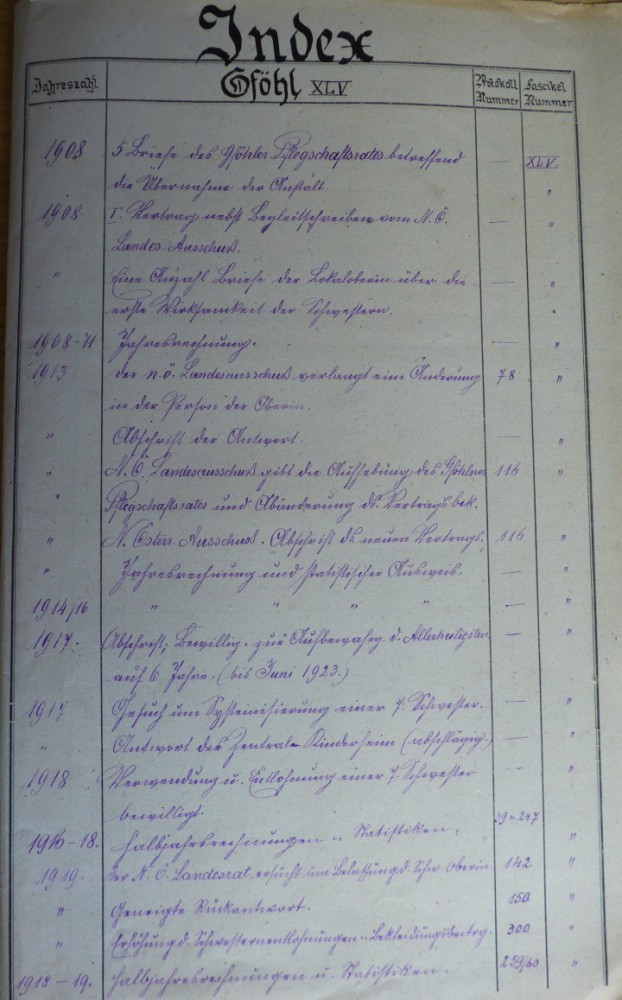 Index
Jahreszahl Gföhl XLV Protokoll Nummer Fascikel Nummer
1908 5 Briefe des Gföhler Pflegschaftsrates betreffend — XLV.
die Übernahme der Anstalt. "
1908 I. Vertrag nebst Begleitschreiben vom N. Ö. — "
Landes-Ausschuß.
" Eine Anzahl Briefe der Lokaloberin über die — "
erste Wirksamkeit der Schwestern. "
1908-71 Jahresrechnung. — "
1913 Der n. ö. Landesausschuß verlangt eine Änderung 78 "
in der Person der Oberin.
" Abschrift der Antwort. — "
" N. Ö. Landesausschuß gibt die Aufhebung des Gföhler 116 "
" Pflegschaftsrates und Abänderung ds. Vertrags bek.
" N. Österr. Ausschuß. Abschrift ds neuen Vertrags. 116 "
" Jahresrechnung und statistischer Ausweis. — "
1914/16 " " " " — "
1917. Abschrift; Bewillig. zur Aufbewahrg d. Allerheiligsten — "
auf 6 Jahre. (bis Juni 1923.)
1917 Gesuch um Systemisierung einer 7. Schwester. — "
" Antwort des Zentral-Kinderheim (abschlägig.) — "
1918 Verwendung u. Entlohnung einer 7. Schwester — "
bewilligt.
1916-18. Halbjahresrechnungen u. Statistiken. 39 u 247 "
1919. Der N. Ö. Landesrat ersucht um Belassung d. Schw. Oberin. 142 "
" Geneigte Rückantwort. 150 "
" Erhöhung d. Schwesternentlohnungen u. Bekleidungsbeitrg. 300 "
1918-19. Halbjahresrechnungen u. Statistiken. 259/60 "